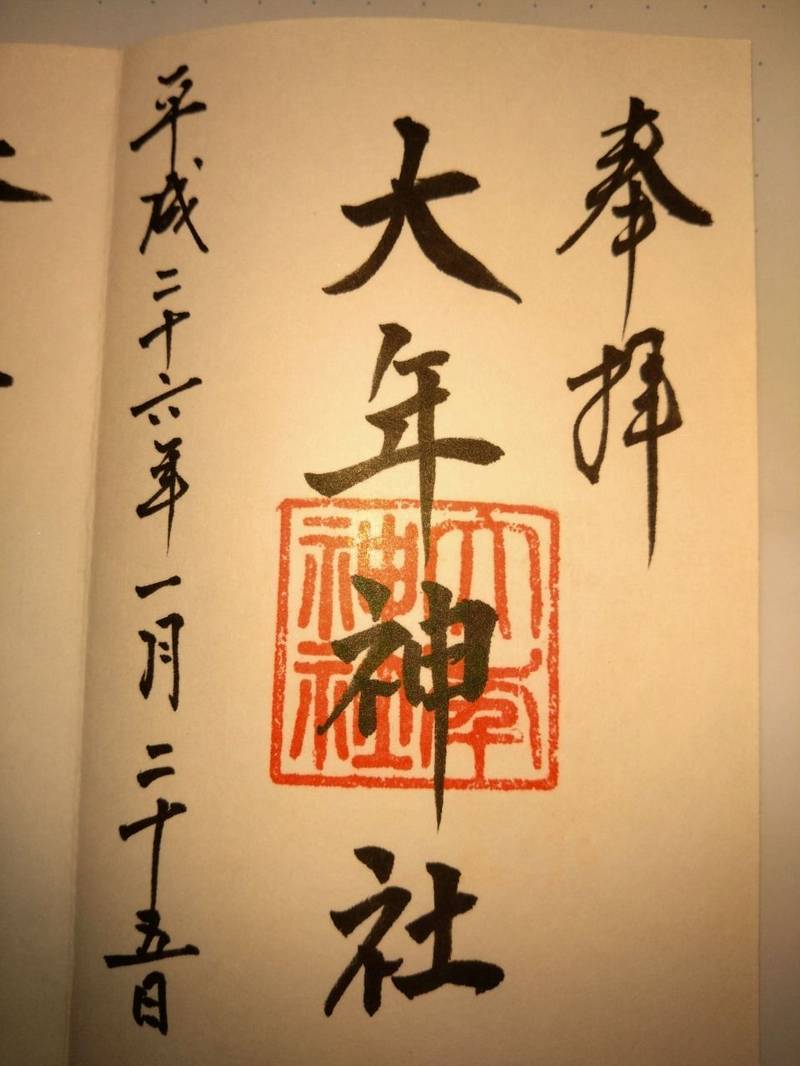 奉拝
大年神社
大年神社
平成二十六年一月二十五日